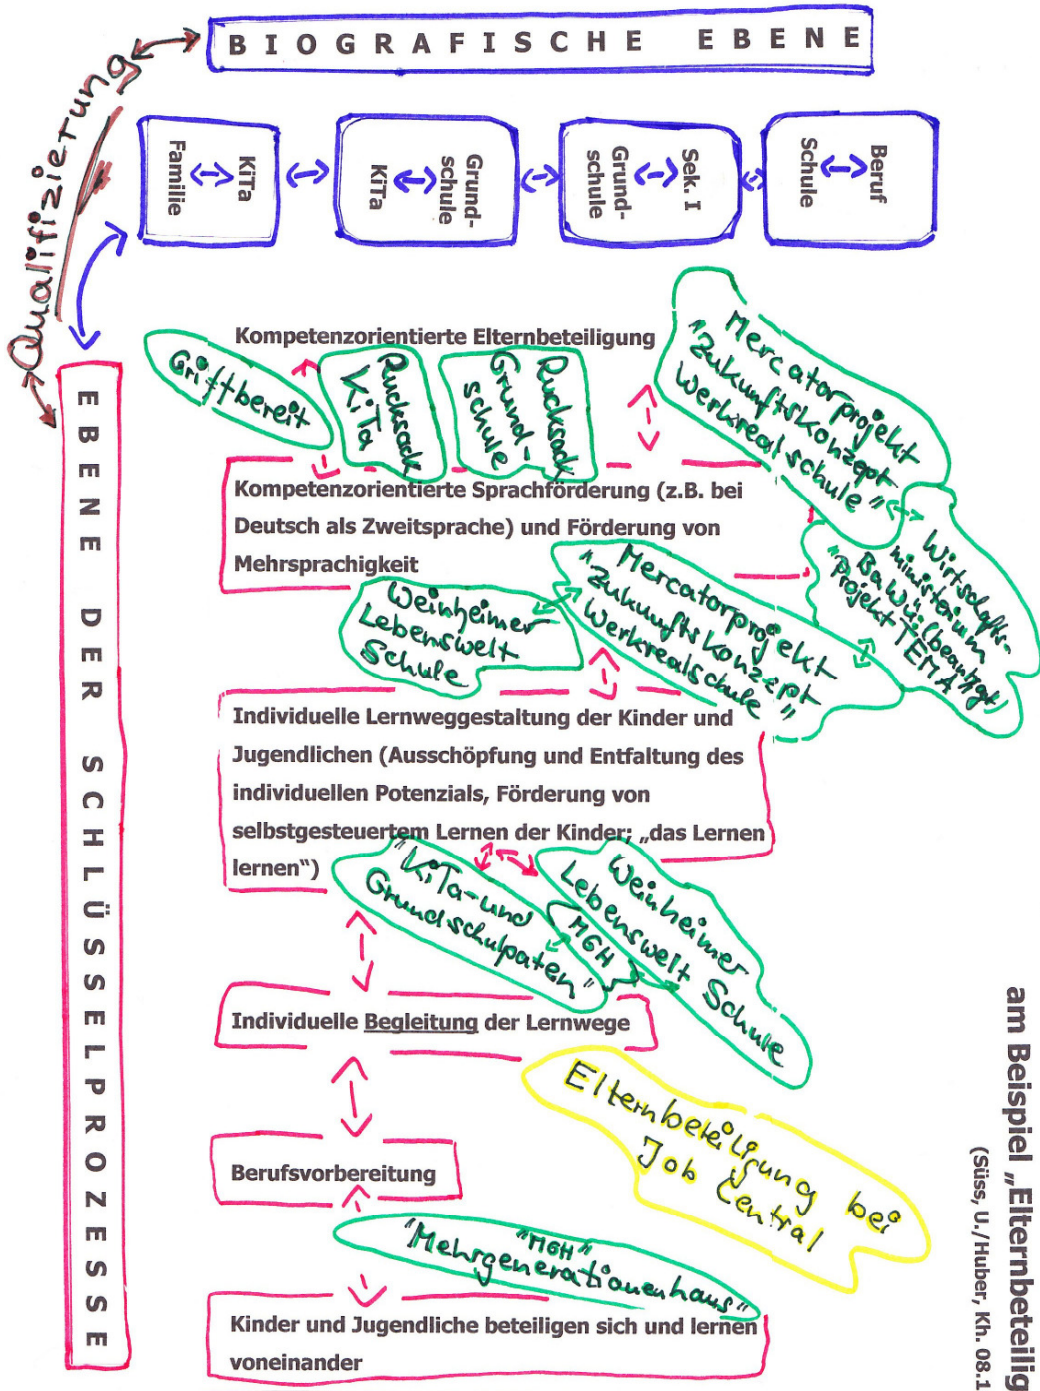 BIOGRAFISCHE EBENE
Qualifizierung
Familie
KiTa
KiTa
Grund-
schule
Grund-
schule
Sek. I
Schule
Beruf
EBENE DER SCHLÜSSELPROZESSE
Kompetenzorientierte Elternbeteiligung
Griffbereit
Rucksack
KiTa
Rucksack
Grund-
schule
Mercatorprojekt
"Zukunftskonzept
Werkrealschule"
Kompetenzorientierte Sprachförderung (z.B. bei
Deutsch als Zweitsprache) und Förderung von
Mehrsprachigkeit
Wirtschafts-
ministerium
BaWü (beantragt)
"Projekt TEMA"
Weinheimer
Lebenswelt
Schule
Mercatorprojekt
"Zukunftskonzept
Werkrealschule"
Individuelle Lernweggestaltung der Kinder und
Jugendlichen (Ausschöpfung und Entfaltung des
individuellen Potenzials, Förderung von
selbstgesteuertem Lernen der Kinder; „das Lernen
lernen“)
"KiTa- und
Grundschulpaten"
MGH
Weinheimer
Lebenswelt Schule
Individuelle Begleitung der Lernwege
Elternbeteiligung bei
Job Central
Berufsvorbereitung
"MGH"
"Mehrgenerationenhaus"
Kinder und Jugendliche beteiligen sich und lernen
voneinander
am Beispiel „Elternbeteilig
(Süss, U./Huber, Kh. 08.1